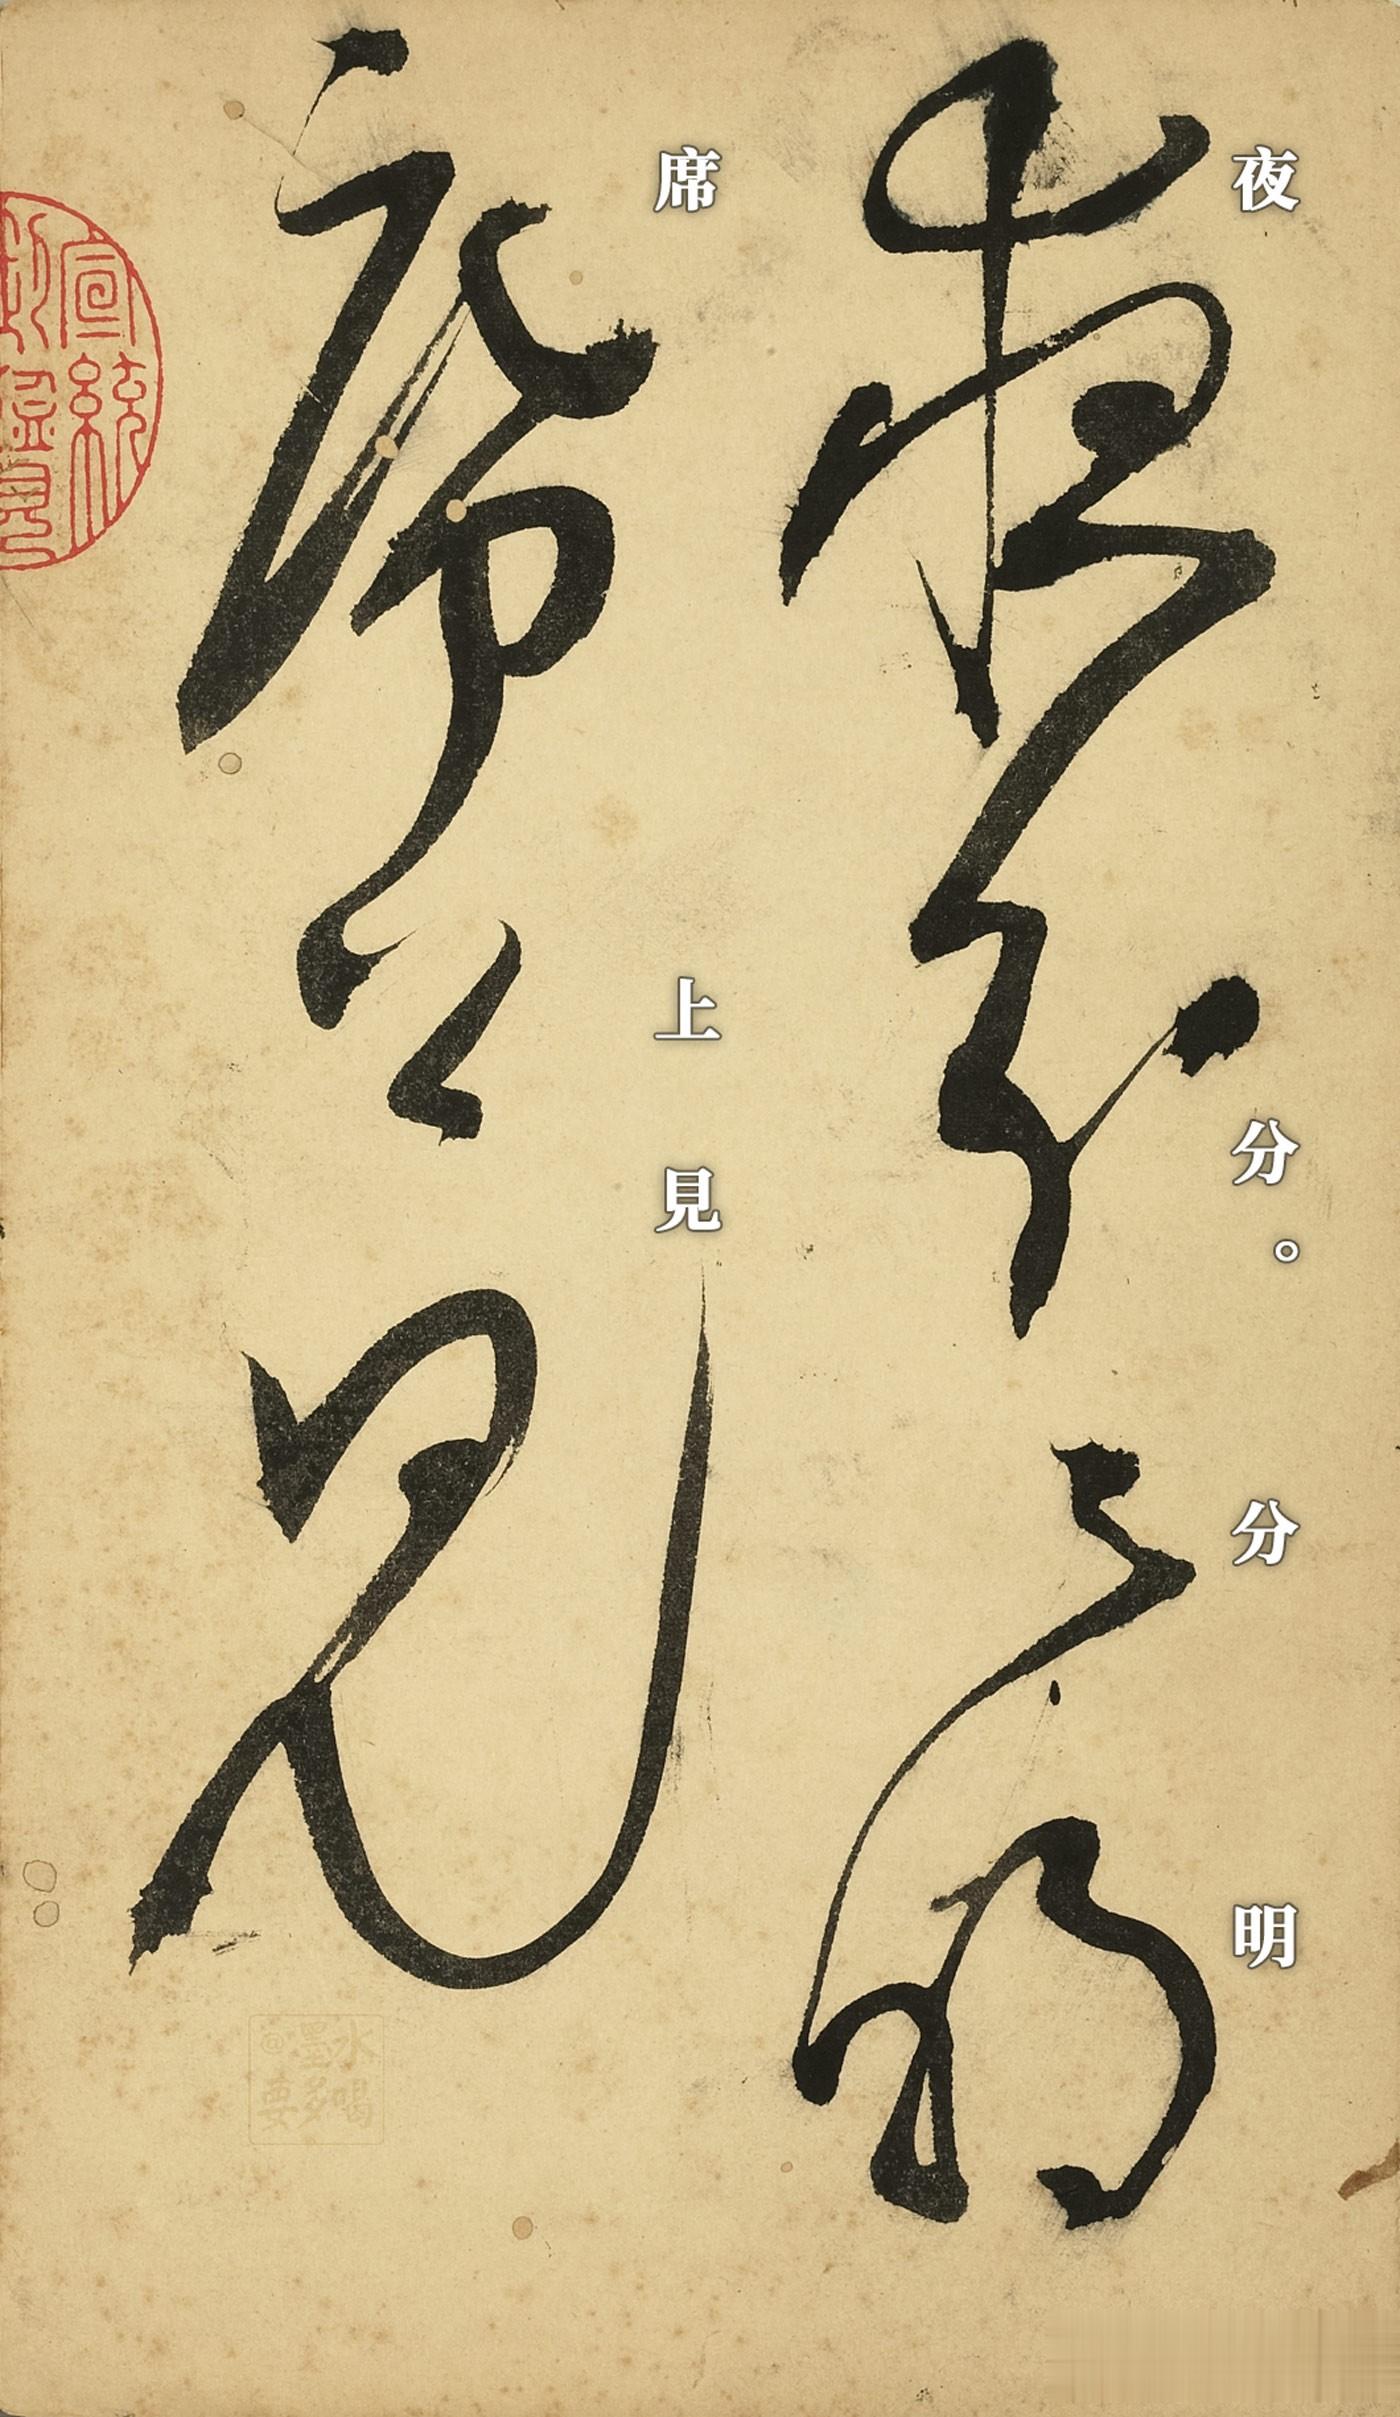 夜分。分明
席上見
宣統
@墨水
要多喝